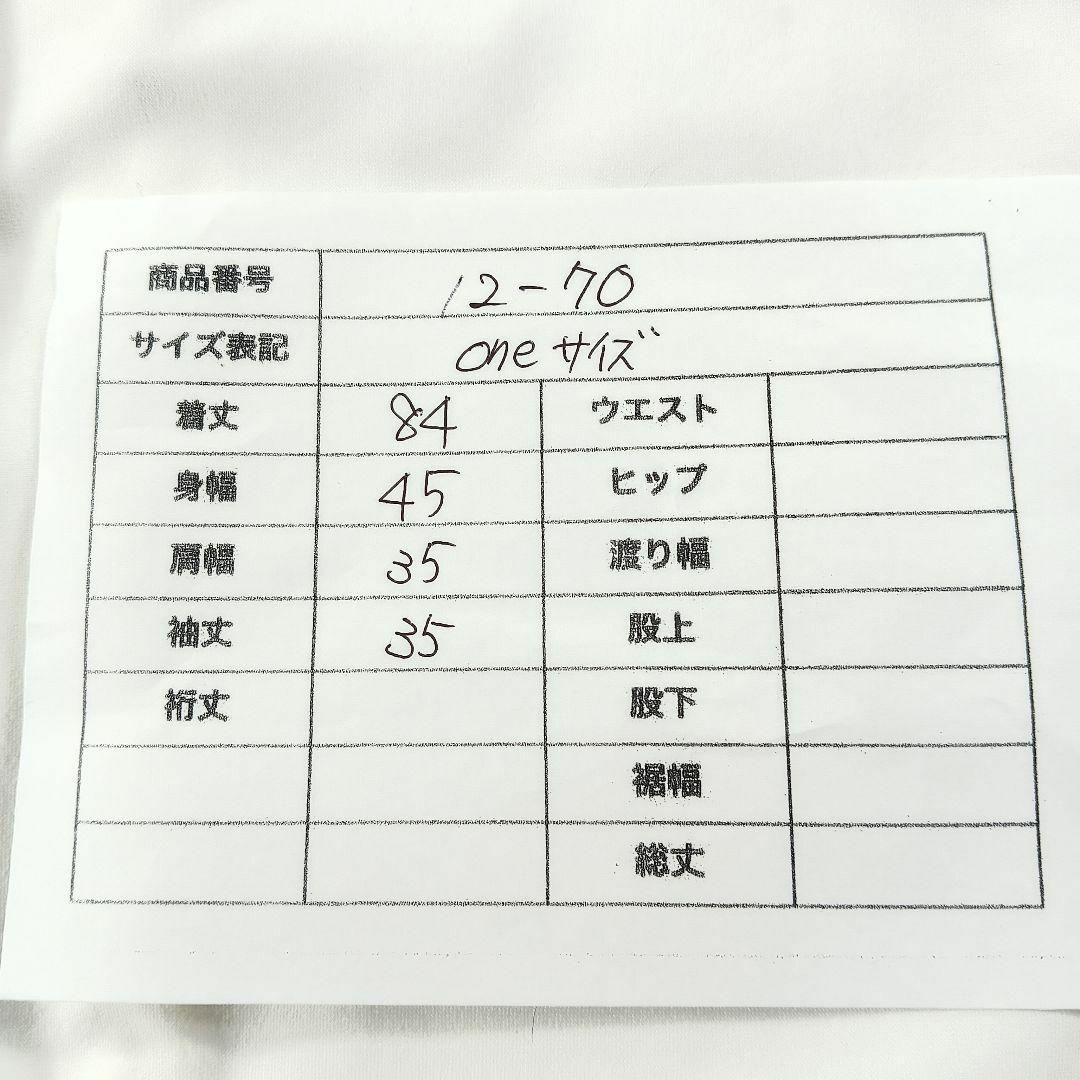 商品番号 12-70
サイズ表記 oneサイズ
着丈 84 ウエスト
身幅 45 ヒップ
肩幅 35 渡り幅
袖丈 35 股上
裄丈 股下
裾幅
総丈